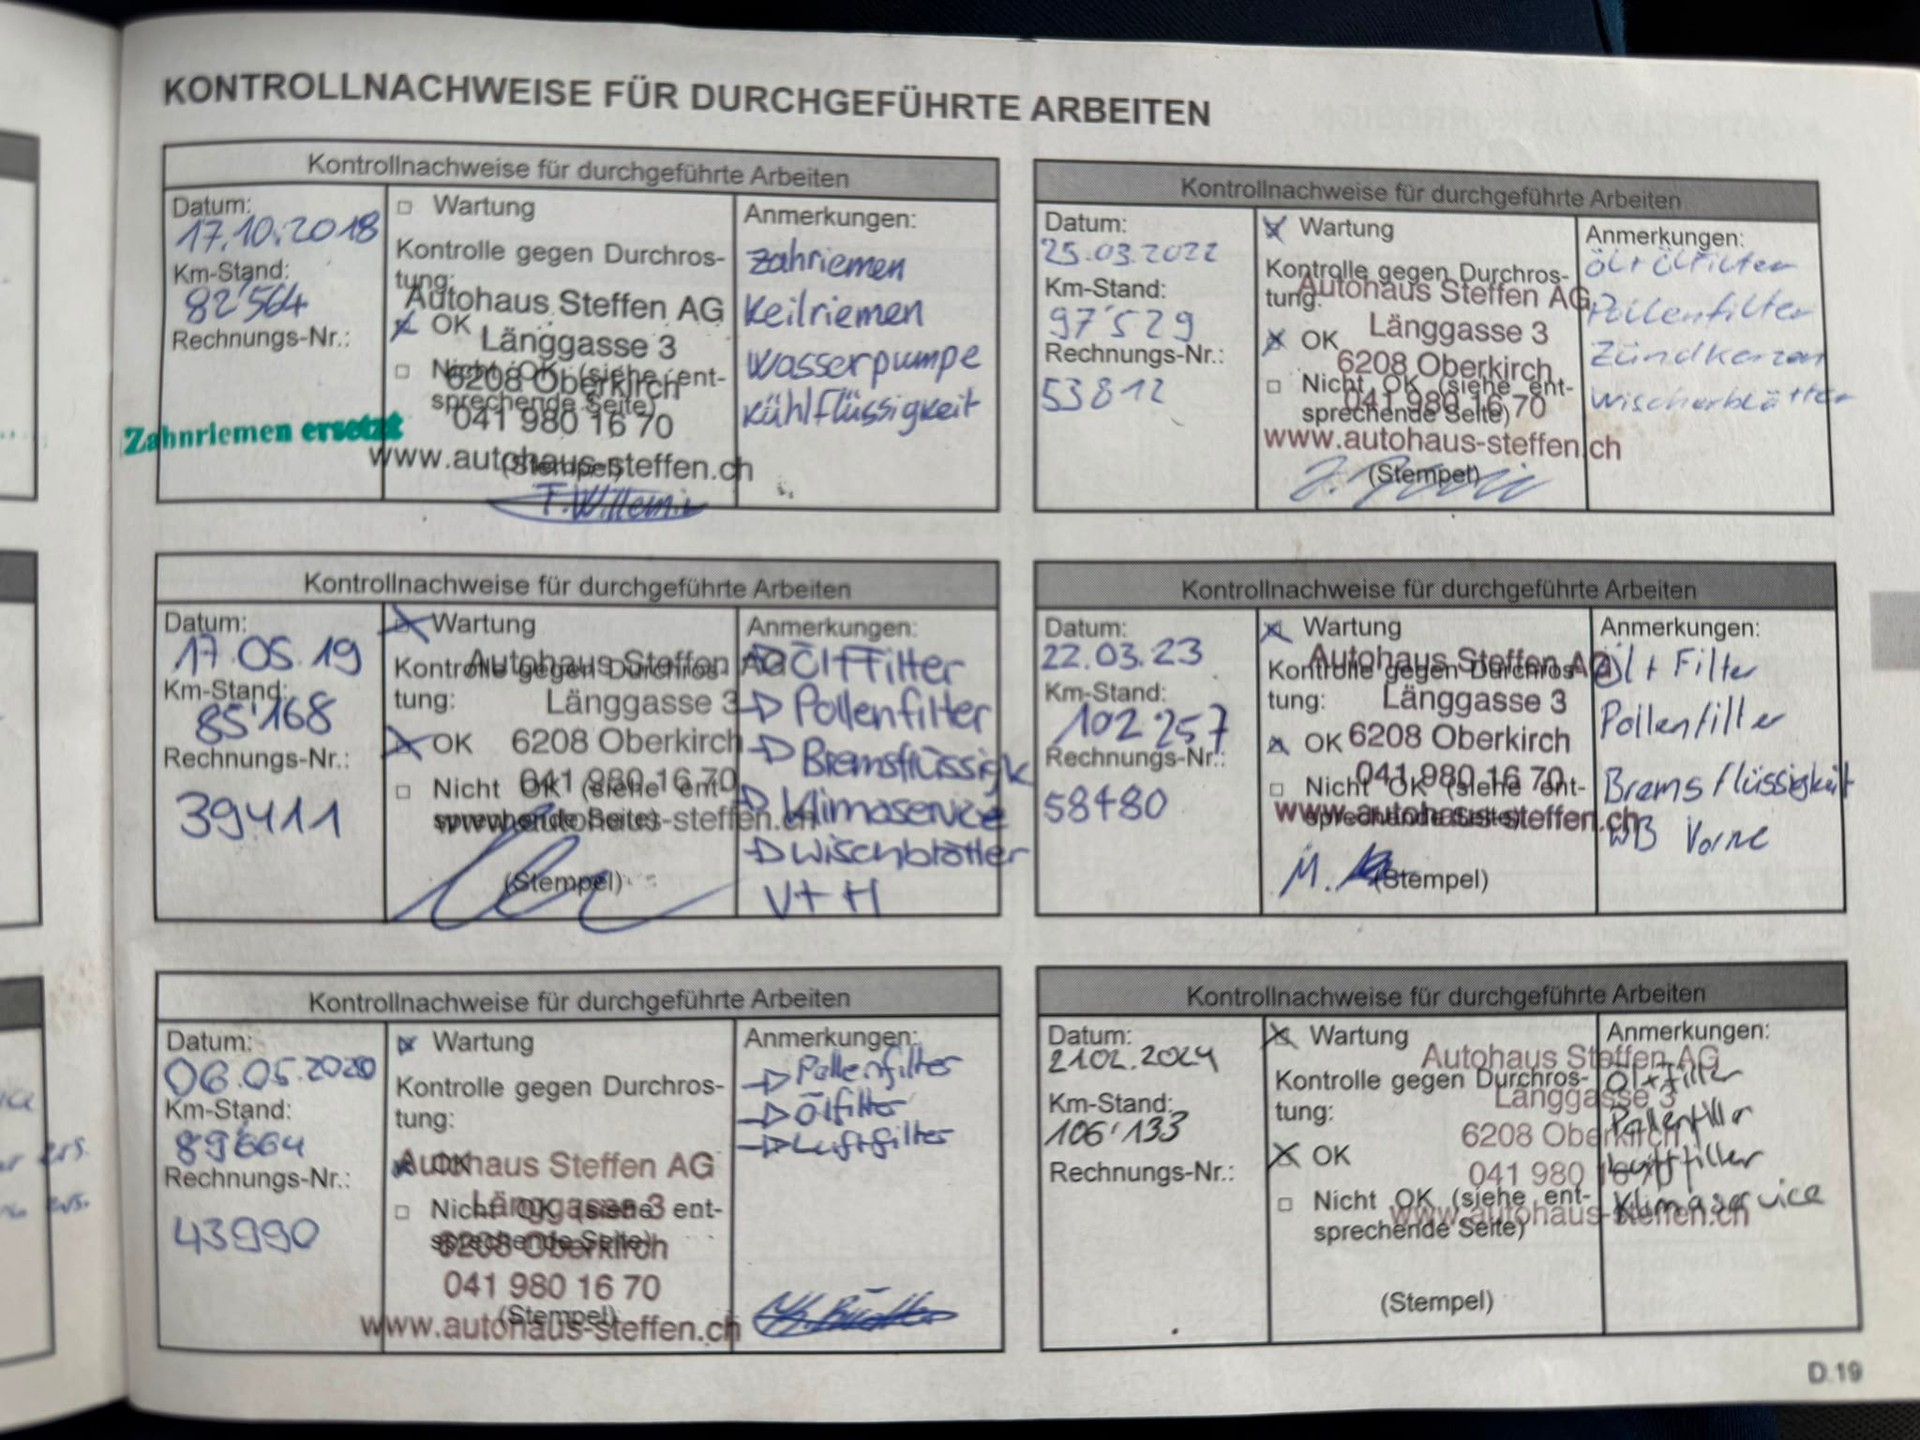 KONTROLLNACHWEISE FÜR DURCHGEFÜHRTE ARBEITEN
Kontrollnachweise für durchgeführte Arbeiten
Datum:
17.10.2018
Km-Stand:
82'564
Rechnungs-Nr.:
Zahnriemen ersetzt
Wartung
Kontrolle gegen Durchros-
tung:
Autohaus Steffen AG
OK
Länggasse 3
Nicht OK (siehe ent-
6208 Oberkirch
sprechende Seite)
041 980 16 70
www.autohaus-steffen.ch
(Stempel)
T. Willemin
Anmerkungen:
Zahriemen
Keilriemen
Wasserpumpe
Kühlflüssigkeit
Kontrollnachweise für durchgeführte Arbeiten
Datum:
25.03.2022
Km-Stand:
97'529
Rechnungs-Nr.:
53812
Wartung
Kontrolle gegen Durchros-
tung:
Autohaus Steffen AG
OK
Länggasse 3
6208 Oberkirch
Nicht OK (siehe ent-
041 980 16 70
sprechende Seite)
www.autohaus-steffen.ch
(Stempel)
Anmerkungen:
Öl+Ölfilter
Pollenfilter
Zündkerzen
Wischerblätter
Kontrollnachweise für durchgeführte Arbeiten
Datum:
17.05.19
Km-Stand:
85'168
Rechnungs-Nr.:
39411
Wartung
Autohaus Steffen AG
Kontrolle gegen Durchros-
tung:
Länggasse 3
OK
6208 Oberkirch
Nicht OK (siehe ent-
041 980 16 70
sprechende Seite)
www.autohaus-steffen.ch
(Stempel)
Anmerkungen:
Öl+Filter
Pollenfilter
Bremsflüssigk
Klimaservice
Wischblätter
V+H
Kontrollnachweise für durchgeführte Arbeiten
Datum:
22.03.23
Km-Stand:
102 257
Rechnungs-Nr.:
58480
Wartung
Autohaus Steffen AG
Kontrolle gegen Durchros-
tung:
Länggasse 3
OK
6208 Oberkirch
Nicht OK (siehe ent-
041 980 16 70
sprechende Seite)
www.autohaus-steffen.ch
M.
(Stempel)
Anmerkungen:
Öl + Filter
Pollenfilter
Bremsflüssigkeit
WB Vorne
Kontrollnachweise für durchgeführte Arbeiten
Datum:
06.05.2020
Km-Stand:
89'664
Rechnungs-Nr.:
43990
Wartung
Kontrolle gegen Durchros-
tung:
OK
Autohaus Steffen AG
Nicht OK (siehe ent-
Länggasse 3
sprechende Seite)
6208 Oberkirch
041 980 16 70
(Stempel)
www.autohaus-steffen.ch
Anmerkungen:
Pollenfilter
Ölfilter
Luftfilter
Kontrollnachweise für durchgeführte Arbeiten
Datum:
21.02.2024
Km-Stand:
106'133
Rechnungs-Nr.:
Wartung
Autohaus Steffen AG
Kontrolle gegen Durchros-
Länggasse 3
tung:
6208 Oberkirch
OK
041 980 16 70
Nicht OK (siehe ent-
www.autohaus-steffen.ch
sprechende Seite)
(Stempel)
Anmerkungen:
Öl+Filter
Pollenfilter
Luftfilter
Klimaservice
D.19
ers.
ers.